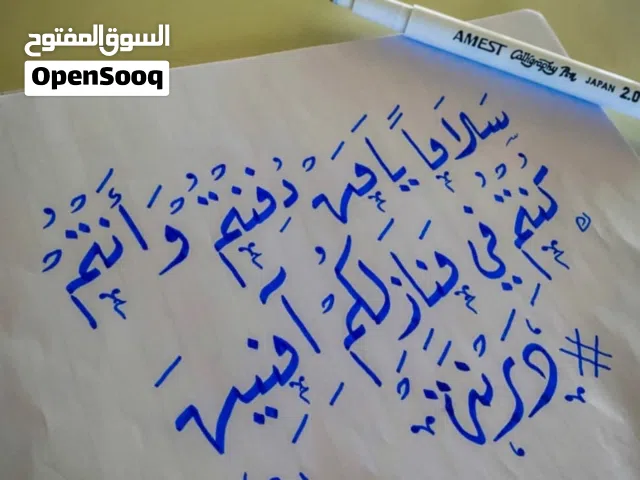 السوق المفتوح
OpenSooq
AMEST Calligraphy Pen JAPAN 2.0
سَلاماً يا مَن دُفِنتُم وَأَنتُم
كُنتُم في مَنازِلَكُم آمِنينَ